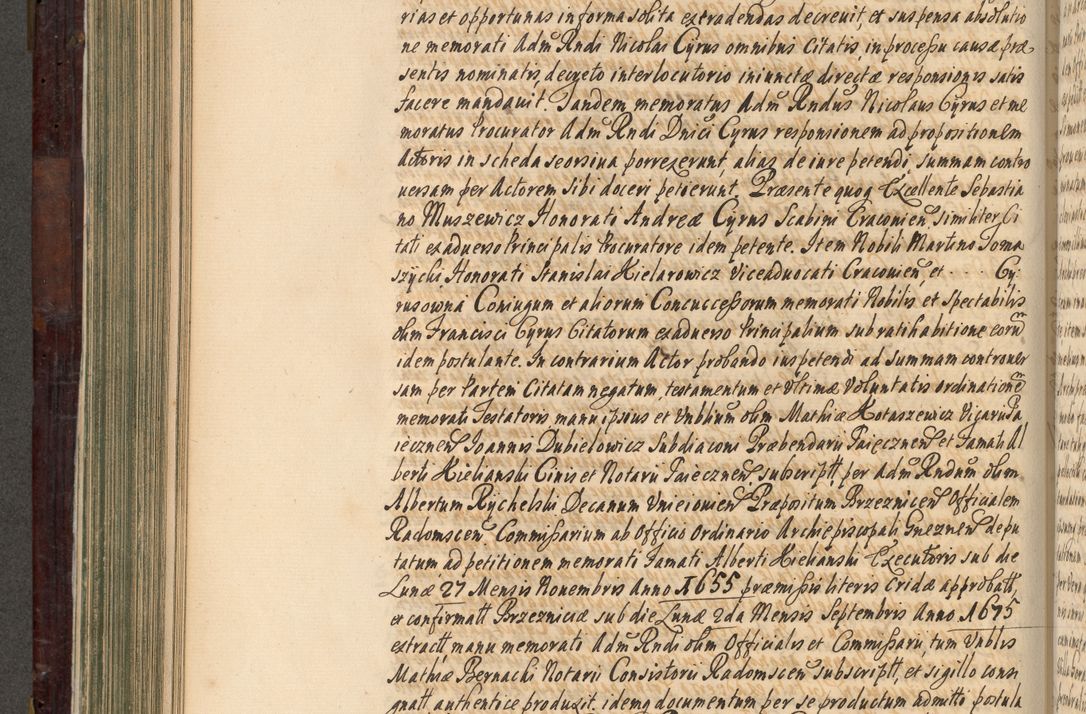 rias et opportunas in forma solita extradendas decreuit, et suspensa absolutio
ne memorati Adm Rndi Nicolai Cyrus omnibus Citatis, in processu causæ præ
sentis nominatis, decreto interlocutorio iniunctæ directæ responsionis satis
facere mandauit. Tandem memoratus Adm Rndus Nicolaus Cyrus et me
moratus Procurator Adm Rndi Dnici Cyrus responsionem ad propositionem
Actoris in scheda seorsiua porrexerunt, alias de iure petendi, summam contro
uersam per Actorem sibi doceri petierunt, Præsente quoq Excellente Sebastia
no Muszewicz Honorati Andreæ Cyrus Scabini Cracouien similiter Ci
tati ex aduerso Principalis Procuratore idem petente. Item Nobili Martino Toma
szycki Honorati Stanislai Kielarowicz Viceaduocati Cracouien, et . . . . Cy:
rusowna Coniugum et aliorum Concuccessorum memorati Nobilis, et spectabilis
olim Francisci Cyrus Citatorum ex aduerso Principalium sub ratihabitione eorum
idem postulante. In contrarium Actor probando ius petendi ad summam controuer
sam per Partem Citatam negatum, testamentum et Vltimæ Voluntatis ordinationem
memorati Testatoris manu ipsius et Vnblium olim Mathiæ Kotaszewicz Vicarii Pa
ięcznen Joannis Dubielowicz Subdiaconi Præbendarii Paięcznen et Famati Al
berti Kielianski Ciuis et Notarii Paięcznen, subscriptt, per Adm Rndum olim
Albertum Rychelski Decanum Vnieiouien Præpositum Brzeznicen Officialem
Radomscen Commissarium ab Officio Ordinario Archiepiscopali Gneznen depu
tatum ad petitionem memorati Famati Alberti Kielianski Executoris sub die
Lunæ 27 Mensis Nouembris Anno 1655 præmissis literis Cridæ approbatt,
et confirmatt Brzezniciæ sub die Lunæ 2da Mensis Septembris Anno 1675
extractt manu memorati Adm Rndi olim Officialis et Commissarii, tum Vnblis
Mathiæ Bernacki Notarii Consistorii Radomscen subscriptt, et sigillo consi
gnatt authentice produxit, idemq documentum per se productum admitti postula